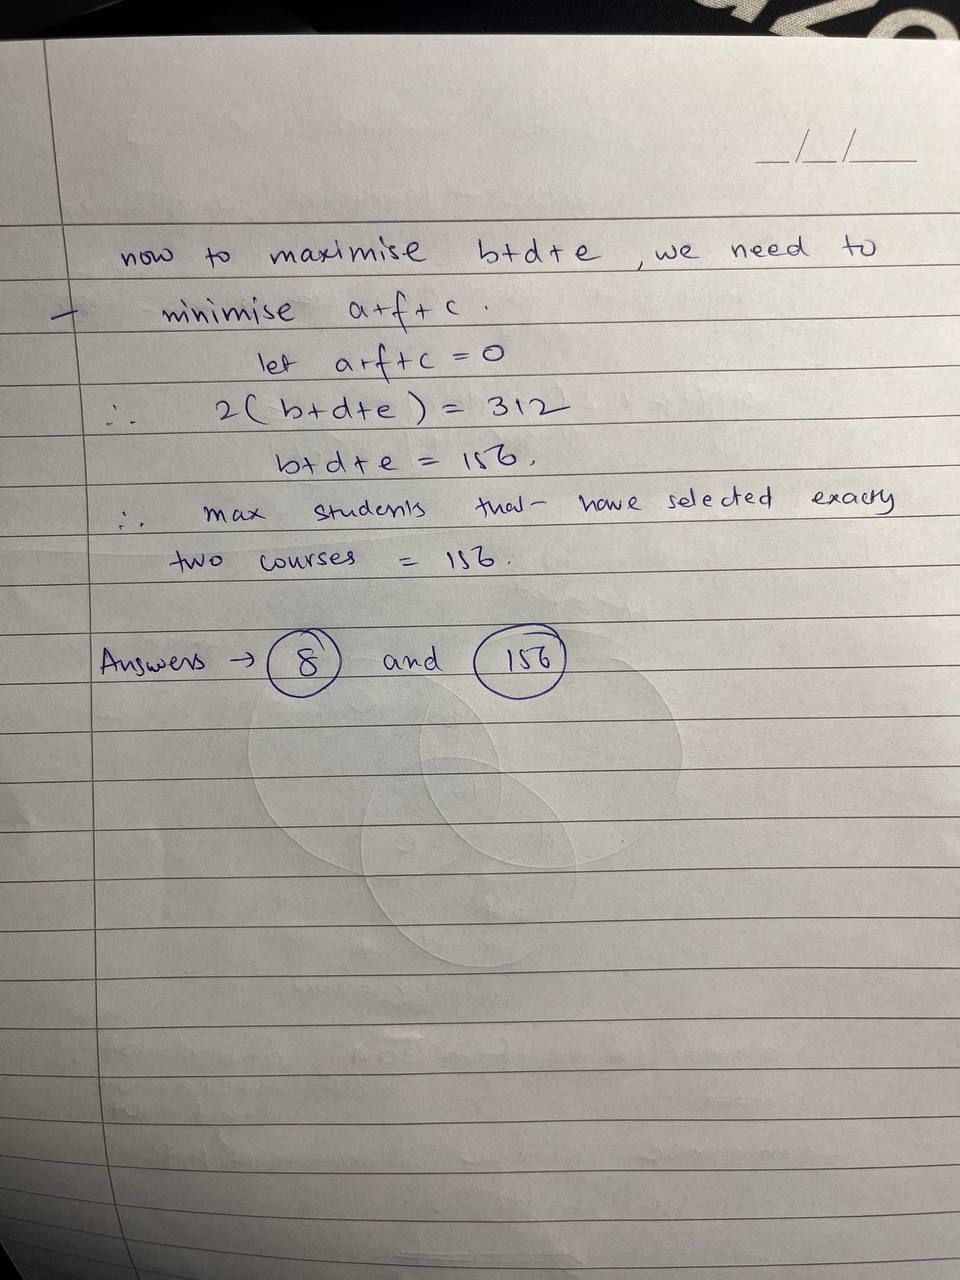 _/_/__
now to maximise b+d+e , we need to
minimise a+f+c .
let a+f+c = 0
∴ 2(b+d+e) = 312
b+d+e = 156.
∴ max students that have selected exacty
two courses = 156.
Answers → 8 and 156